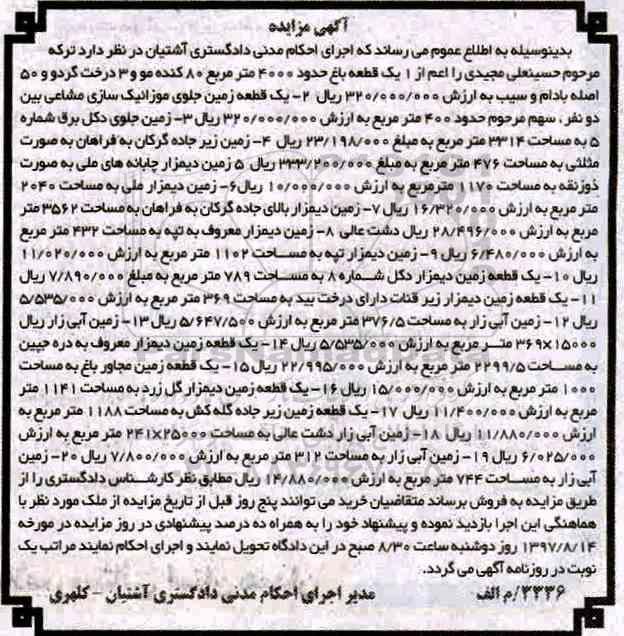 آگهی مزایده
بدینوسیله به اطلاع عموم می رساند که اجرای احکام مدنی دادگستری آشتیان در نظر دارد ترکه
مرحوم حسینعلی مجیدی را اعم از ۱ یک قطعه باغ حدود ۴۰۰۰ متر مربع ۸۰ کنده مو و ۳ درخت گردو و ۵۰
اصله بادام و سیب به ارزش ۳۲۰/۰۰۰/۰۰۰ ریال ۲- یک قطعه زمین جلوی موزائیک سازی مشاعی بین
دو نفر، سهم مرحوم حدود ۴۰۰ متر مربع به ارزش ۳۲۰/۰۰۰/۰۰۰ ریال ۳- زمین جلوی دکل برق شماره
۵ به مساحت ۳۳۱۴ متر مربع به مبلغ ۲۳/۱۹۸/۰۰۰ ریال ۴- زمین زیر جاده گرکان به فراهان به صورت
مثلثی به مساحت ۴۷۶ متر مربع به مبلغ ۳۳۳/۲۰۰/۰۰۰ ریال ۵ زمین دیمزار چابانه های ملی به صورت
ذوزنقه به مساحت ۱۱۷۰ مترمربع به ارزش ۱۰/۰۰۰/۰۰۰ ریال ۶- زمین دیمزار ملی به مساحت ۲۰۴۰
متر مربع به ارزش ۱۶/۳۲۰/۰۰۰ ریال ۷- زمین دیمزار بالای جاده گرکان به فراهان به مساحت ۳۵۶۲ متر
مربع به ارزش ۲۸/۴۹۶/۰۰۰ ریال دشت عالی ۸- زمین دیمزار معروف به تپه به مساحت ۴۳۲ متر مربع
به ارزش ۶/۴۸۰/۰۰۰ ریال ۹- زمین دیمزار تپه به مساحت ۱۱۰۲ متر مربع به ارزش ۱۱/۰۲۰/۰۰۰
ریال ۱۰- یک قطعه زمین دیمزار دکل شماره ۸ به مساحت ۷۸۹ متر مربع به مبلغ ۷/۸۹۰/۰۰۰ ریال
۱۱- یک قطعه زمین دیمزار زیر قنات دارای درخت بید به مساحت ۳۶۹ متر مربع به ارزش ۵/۵۳۵/۰۰۰
ریال ۱۲- زمین آبی زار به مساحت ۳۷۶/۵ متر مربع به ارزش ۵/۶۴۷/۵۰۰ ریال ۱۳- زمین آبی زار ریال
۳۶۹×۱۵۰۰۰ متر مربع به ارزش ۵/۵۳۵/۰۰۰ ریال ۱۴- یک قطعه زمین دیمزار معروف به دره جیین
به مساحت ۲۲۹۹/۵ متر مربع به ارزش ۲۲/۹۹۵/۰۰۰ ریال ۱۵- یک قطعه زمین مجاور باغ به مساحت
۱۰۰۰ متر مربع به ارزش ۱۵/۰۰۰/۰۰۰ ریال ۱۶- یک قطعه زمین دیمزار گل زرد به مساحت ۱۱۴۱ متر
مربع به ارزش ۱۱/۴۰۰/۰۰۰ ریال ۱۷- یک قطعه زمین زیر جاده گله کش به مساحت ۱۱۸۸ متر مربع به
ارزش ۱۱/۸۸۰/۰۰۰ ریال ۱۸- زمین آبی زار دشت عالی به مساحت ۲۵۰۰۰×۲۴۱ متر مربع به ارزش
۶/۰۲۵/۰۰۰ ریال ۱۹- زمین آبی زار به مساحت ۳۱۲ متر مربع به ارزش ۷/۸۰۰/۰۰۰ ریال ۲۰- زمین
آبی زار به مساحت ۷۴۴ متر مربع به ارزش ۱۴/۸۸۰/۰۰۰ ریال مطابق نظر کارشناس دادگستری را از
طریق مزایده به فروش برساند متقاضیان خرید می توانند پنج روز قبل از تاریخ مزایده از ملک مورد نظر با
هماهنگی این اجرا بازدید نموده و پیشنهاد خود را به همراه ده درصد پیشنهادی در روز مزایده در مورخه
۱۳۹۷/۸/۱۴ روز دوشنبه ساعت ۸/۳۰ صبح در این دادگاه تحویل نمایند و اجرای احکام نمایند مراتب یک
نوبت در روزنامه آگهی می گردد.
۳۳۳۶/م الف مدیر اجرای احکام مدنی دادگستری آشتیان - کلهری
ParsNamadData